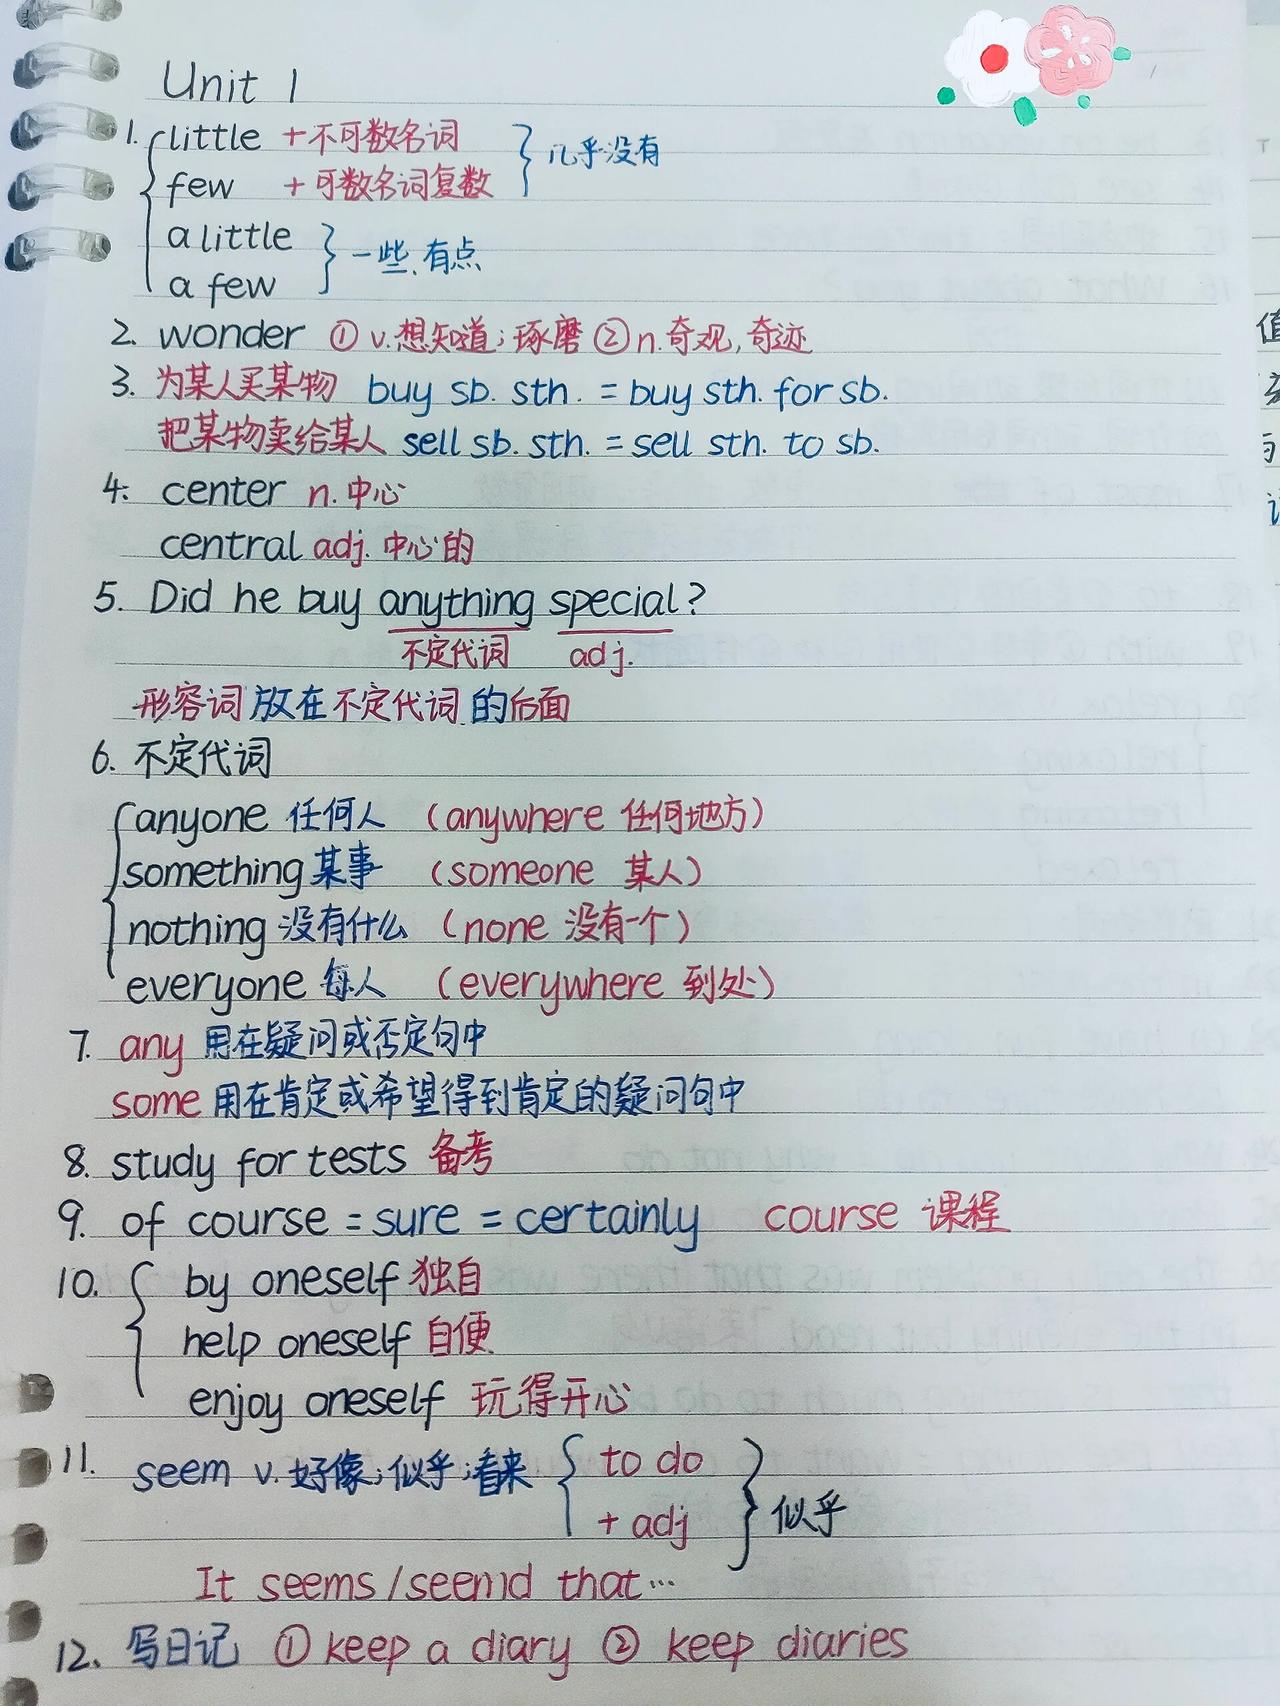 Unit 1
1. little + 不可数名词 } 几乎没有
few + 可数名词复数
a little } 一些、有点
a few
2. wonder ① v.想知道；琢磨 ② n.奇观,奇迹
3. 为某人买某物 buy sb. sth. = buy sth. for sb.
把某物卖给某人 sell sb. sth. = sell sth. to sb.
4. center n. 中心
central adj. 中心的
5. Did he buy anything special?
不定代词 adj.
形容词放在不定代词的后面
6. 不定代词
anyone 任何人 (anywhere 任何地方)
something 某事 (someone 某人)
nothing 没有什么 (none 没有一个)
everyone 每人 (everywhere 到处)
7. any 用在疑问或否定句中
some 用在肯定或希望得到肯定的疑问句中
8. study for tests 备考
9. of course = sure = certainly course 课程
10. by oneself 独自
help oneself 自便
enjoy oneself 玩得开心
11. seem v. 好像；似乎；看来 { to do } 似乎
+ adj
It seems / that…
12. 写日记 ① keep a diary ② keep diaries